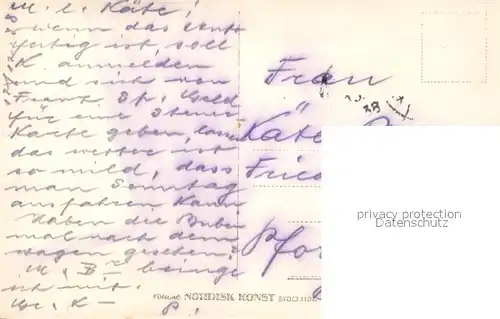 M. l. Käte!
wenn das
fertig ist, soll
K. anmelden
und sich von
Frank. Sp. Geld
für eine Steuer
Karte geben, lassen
das wetter ist
so mild, dass
man Sonntag
ausfahren kann
haben die Buben
mal nach dem
wagen gesehen?
M. Br. bringe
ich mit.
K –
Frau
Käte
Fried
Pfor
38
privacy protection
Datenschutz
FÖRLAG NORDISK KONST STOCKHOL
P!